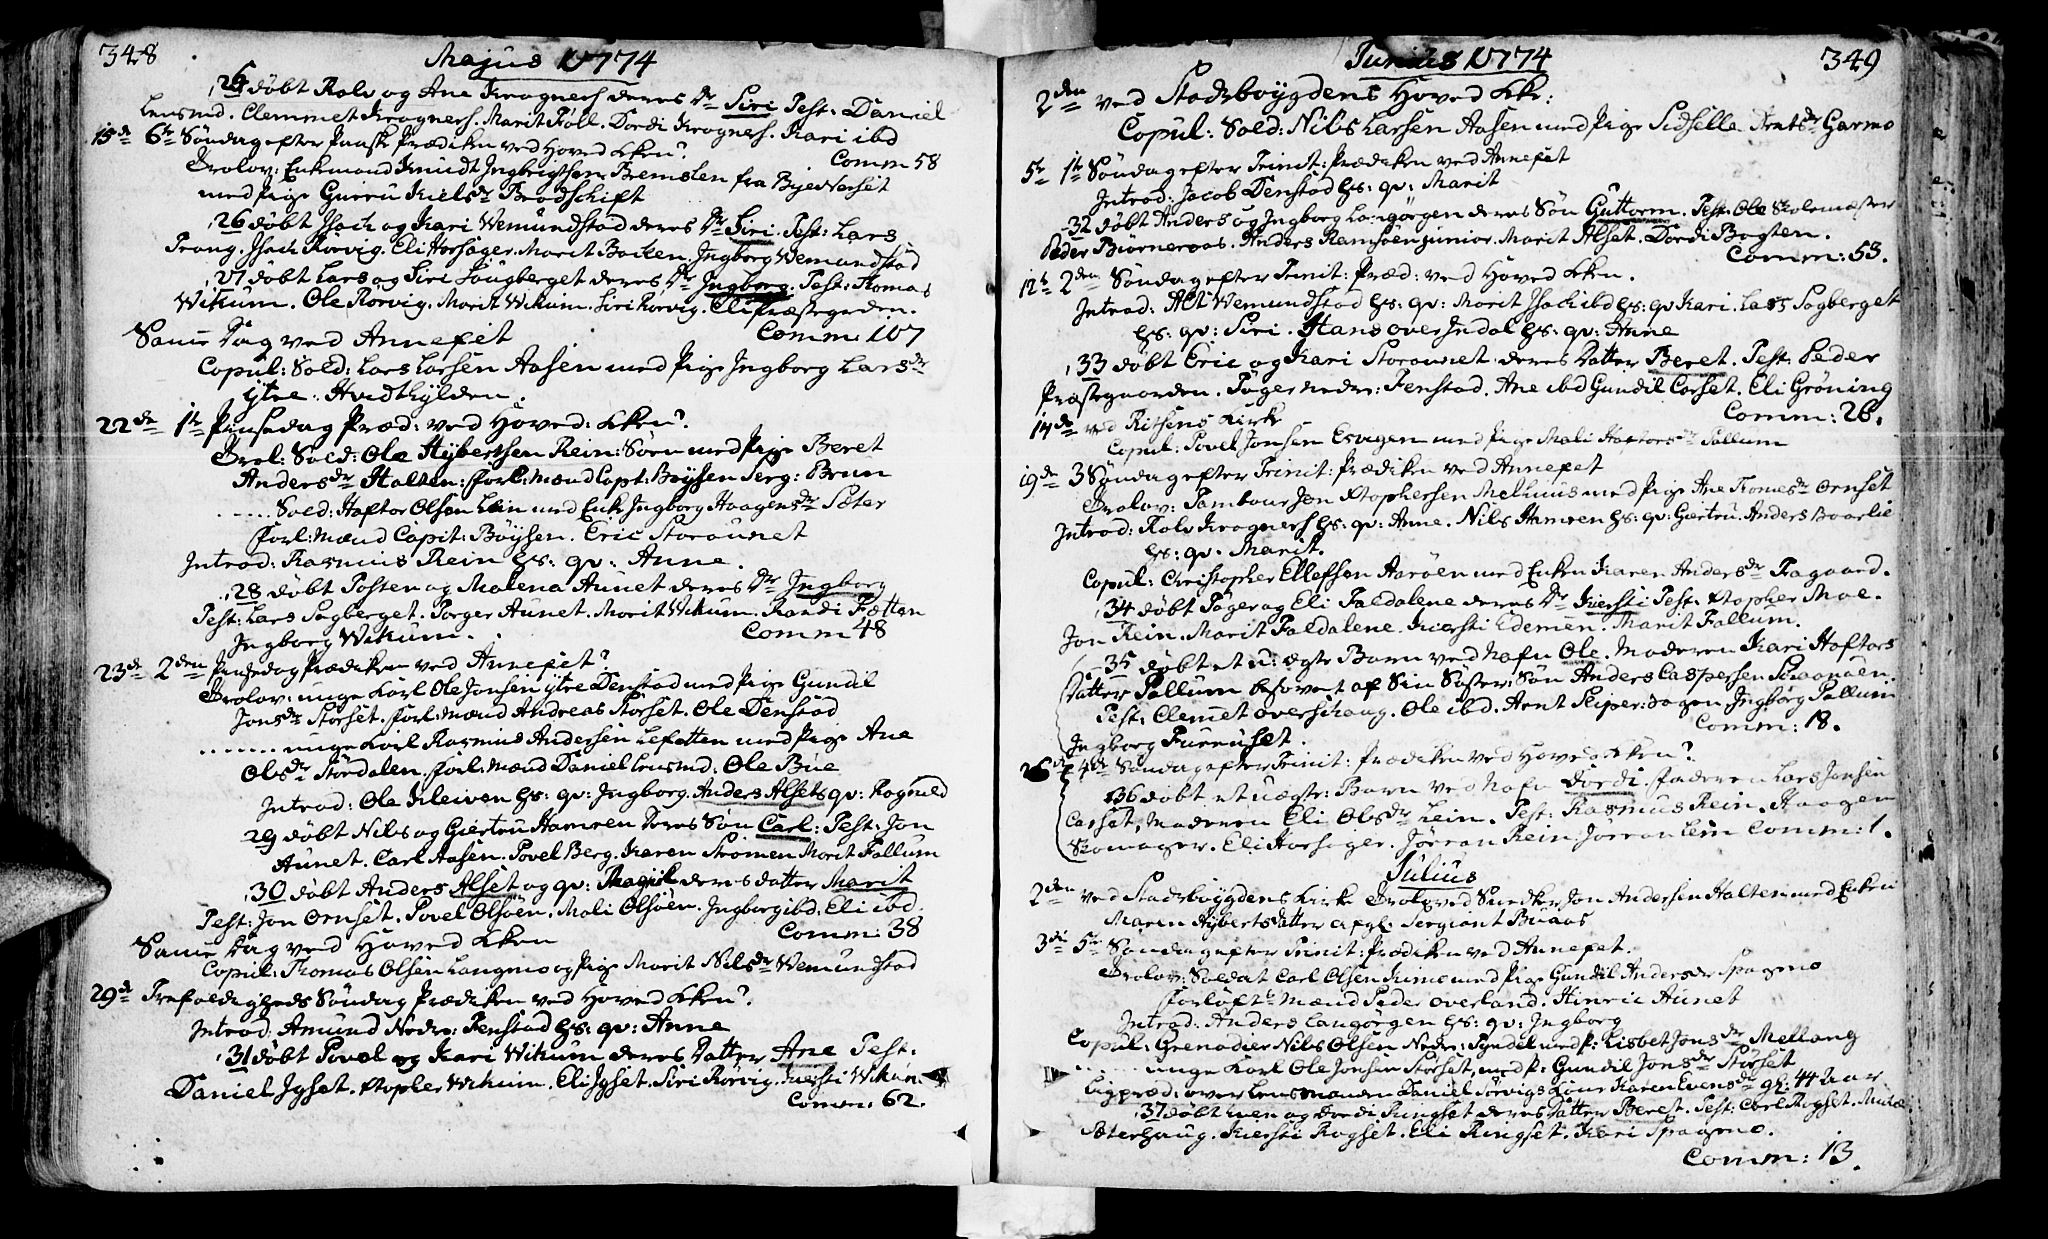 348
Majus 1774
26 döbt Rolv og Ane Krogness deres Dr Siri Test: Daniel
Lensmd. Clemmet Krogness. Marit Foll. Dordi Krogness. Kari ibd
15de 6te Söndag efter Paask Prædiken ved Hoved Kken?
Comm 58
Trolov: Enkemand Knudt Ingbrigtsen Bremslen fra
med Pige Gurru Kielsdr Brodschift
26 döbt Isach og Kari Wemundstad deres Dr Siri. Test: Lars
Trang. Isach Rorvig. Eli Horsager. Marit Backen. Ingborg Wemundstad
27 döbt Lars og Siri Sougberget deres Dr Ingborg. Test: Thomas
Wikum. Ole Rorvig. Marit Wikum. Siri Rorvig. Eli Præstegrden.
Same Dag ved Annexet
Comm: 107
Copul: Sold: Lars Larsen Aasen med Pige Ingborg Larsdr
ytre Hvidtkylden.
22de 1te Pinsedag Præd: ved Hoved: Kken?
Trol: Sold: Ole Hybertsen Rein: Sörn med Pige Beret
Andersdr Halten: forl: mænd Capt: Böysen Serg: Brun
..... Sold: Haftor Olsen Lein med Enke Ingborg Haagensdr Sæter
forl: Mænd Capit: Böysen. Eric Storaunet
Introd: Rasmus Rein hs: qv: Anne.
28 döbt Tosten og Malena Aunet deres Dr Ingborg
Test: Lars Sogberget. Torger Aunet. Marit Wikum. Randi Fætten
Ingborg Wikum.
Comm 48
23de 2den Pinsedag Prædiken ved Annexet?
Trolov: unge Karl Ole Jonsen ytre Denstad med Pige Gundil
Jonsdr Störset. forl: mænd Andreas Storset. Ole Denstad
....... unge Karl Rasmus Andersen Lefætten med Pige Ane
Olsdr Stördalen. forl: mænd Daniel Lensmd. Ole Büe
Introd: Ole Kleiven hs: qv: Ingborg. Anders Alsets qv: Rognild
29 döbt Nils og Giertru Hamren deres Sön Carl: Test: Jon
Aunet. Carl Aasen. Povel Berg. Karen Strömen Marit Fallum
30 döbt Anders Alset og qv: deres datter Marit
Test: Jon Ornset. Povel Olsöen. Mali Olsöen. Ingborg ibd. Eli ibd.
Same Dag ved Hoved Kken
Comm: 38
Copul: Thomas Olsen Langmo og Pige Marit Nilsdr Wemundstad
29de Trefoldigheds Söndag Prædiken ved Hoved Kken?
Introd: Amund Nedre: Fenstad hs: qv: Anne
31 döbt Povel og Kari Wikum deres Datter Ane Test:
Daniel Igset. Xtopher Wikum. Eli Igset. Siri Rorvig. Kiersti Wikum
Comm: 62.
349
Junius 1774
2den ved Stadsboygdens Hoved Kke:
Copul: Sold: Nils Larsen Aasen med Pige Sidselle Arntsdr Garmo
5te 1te Söndag efter Trinit: Prædiken ved Annexet
Introd: Jacob Denstad hs: qv: Marit
32 döbt Anders og Ingborg Langörgen deres Sön Guttorm. Test: Ole Skolemæster
Peder Biörneraas. Anders Ramsöen junior. Marit Alset. Dordi Bogten.
Comm: 53.
12te 2den Söndag efter Trinit: Præd: ved Hoved Kken.
Introd: Alt Wemundstad hs: qv: Marit Isach ibd hs: qv Kari. Lars Sogberget
hs: qv: Siri. Hans over Indal hs: qv: Anne
33 döbt Eric og Kari Storaunet deres Datter Beret. Test: Peder
Præstegaarden. Töger nedre: Fenstad. Ane ibd Gundil Corset. Eli Gröning
Comm: 26.
14de ved Ritsens Kirke
Copul: Povel Jonsen med Pige Mali Haftorsdr Sollum
19de 3 Söndag efter Trinit: Prædiken ved Annexet
Trolov: Tambour Jon Xtophersen Melhuus med Pige Ane Thomesdr Ornset
Introd: Rolv Krogness hs: qv: Anne. Nils Hamren hs: qv: Giertru. Anders Boorlie
hs: qv. Marit.
Copul: Christopher Ellefsen Aaröen med Enken Karen Andersdr Fragaard.
34 döbt Töger og Eli Faldalene deres Dr Kiersti Test: Xtopher Moe.
Jon Rein. Marit Faldalene. Kiersti Edemen. Marit Fallum.
35 döbt et u: ægte Barn ved Nafn Ole. Moderen Kari Haftors
Datter Pallum besovet af Sin Söster: Sön Anders Caspersen
Test: Clemet overskaug. Ole ibd. Arnt Skiper: hagen Ingborg Pallum
Ingborg Furruset.
Comm: 18.
26de 4de Söndag efter Trinit: Prædiken ved Hoved Kken?
36 döbt et uægte: Barn ved Nafn Dordi. faderen Lars Jonsen
Carset, Moderen Eli Olsdr Lein. Test: Rasmus Rein. Haagen
Skomager. Eli Horsager. Jörran Rein Jorran Lein Comm: 1.
Julius
2den ved Stadsböygdens Kirke Troloved Snedker Jon Andersen Halten med Enken
Maren Hyberts Datter afgl: Sergiant Buaas
3die 5te Söndag efter Trinit: Prædiken ved Annexet.
Trolov: Soldat Carl Olsen Kimo med Pige Gundil Andersdr Spagmo
forlöfts Mænd Peder overland. Hinric Aunet
Introd: Anders Langörgen hs: qv: Ingborg
Copul: Grenadier Nils Olsen Nedre: Fyndel med P: Lisbet Jonsdr Mellang
...... unge Karl Ole Jonsen Störset, med P: Gundil Jonsdr Störset
Ligpræd: over Lensmanden Daniel Sörvigs Kone Karen Evensdr gl: 44 Aar
37 döbt Even og Dordi Ringset deres Datter Beret. Test: Carl Rogset.
Sæterhaug. Kiersti Rogset. Eli Ringset. Kari Spagmo.
Comm: 13.